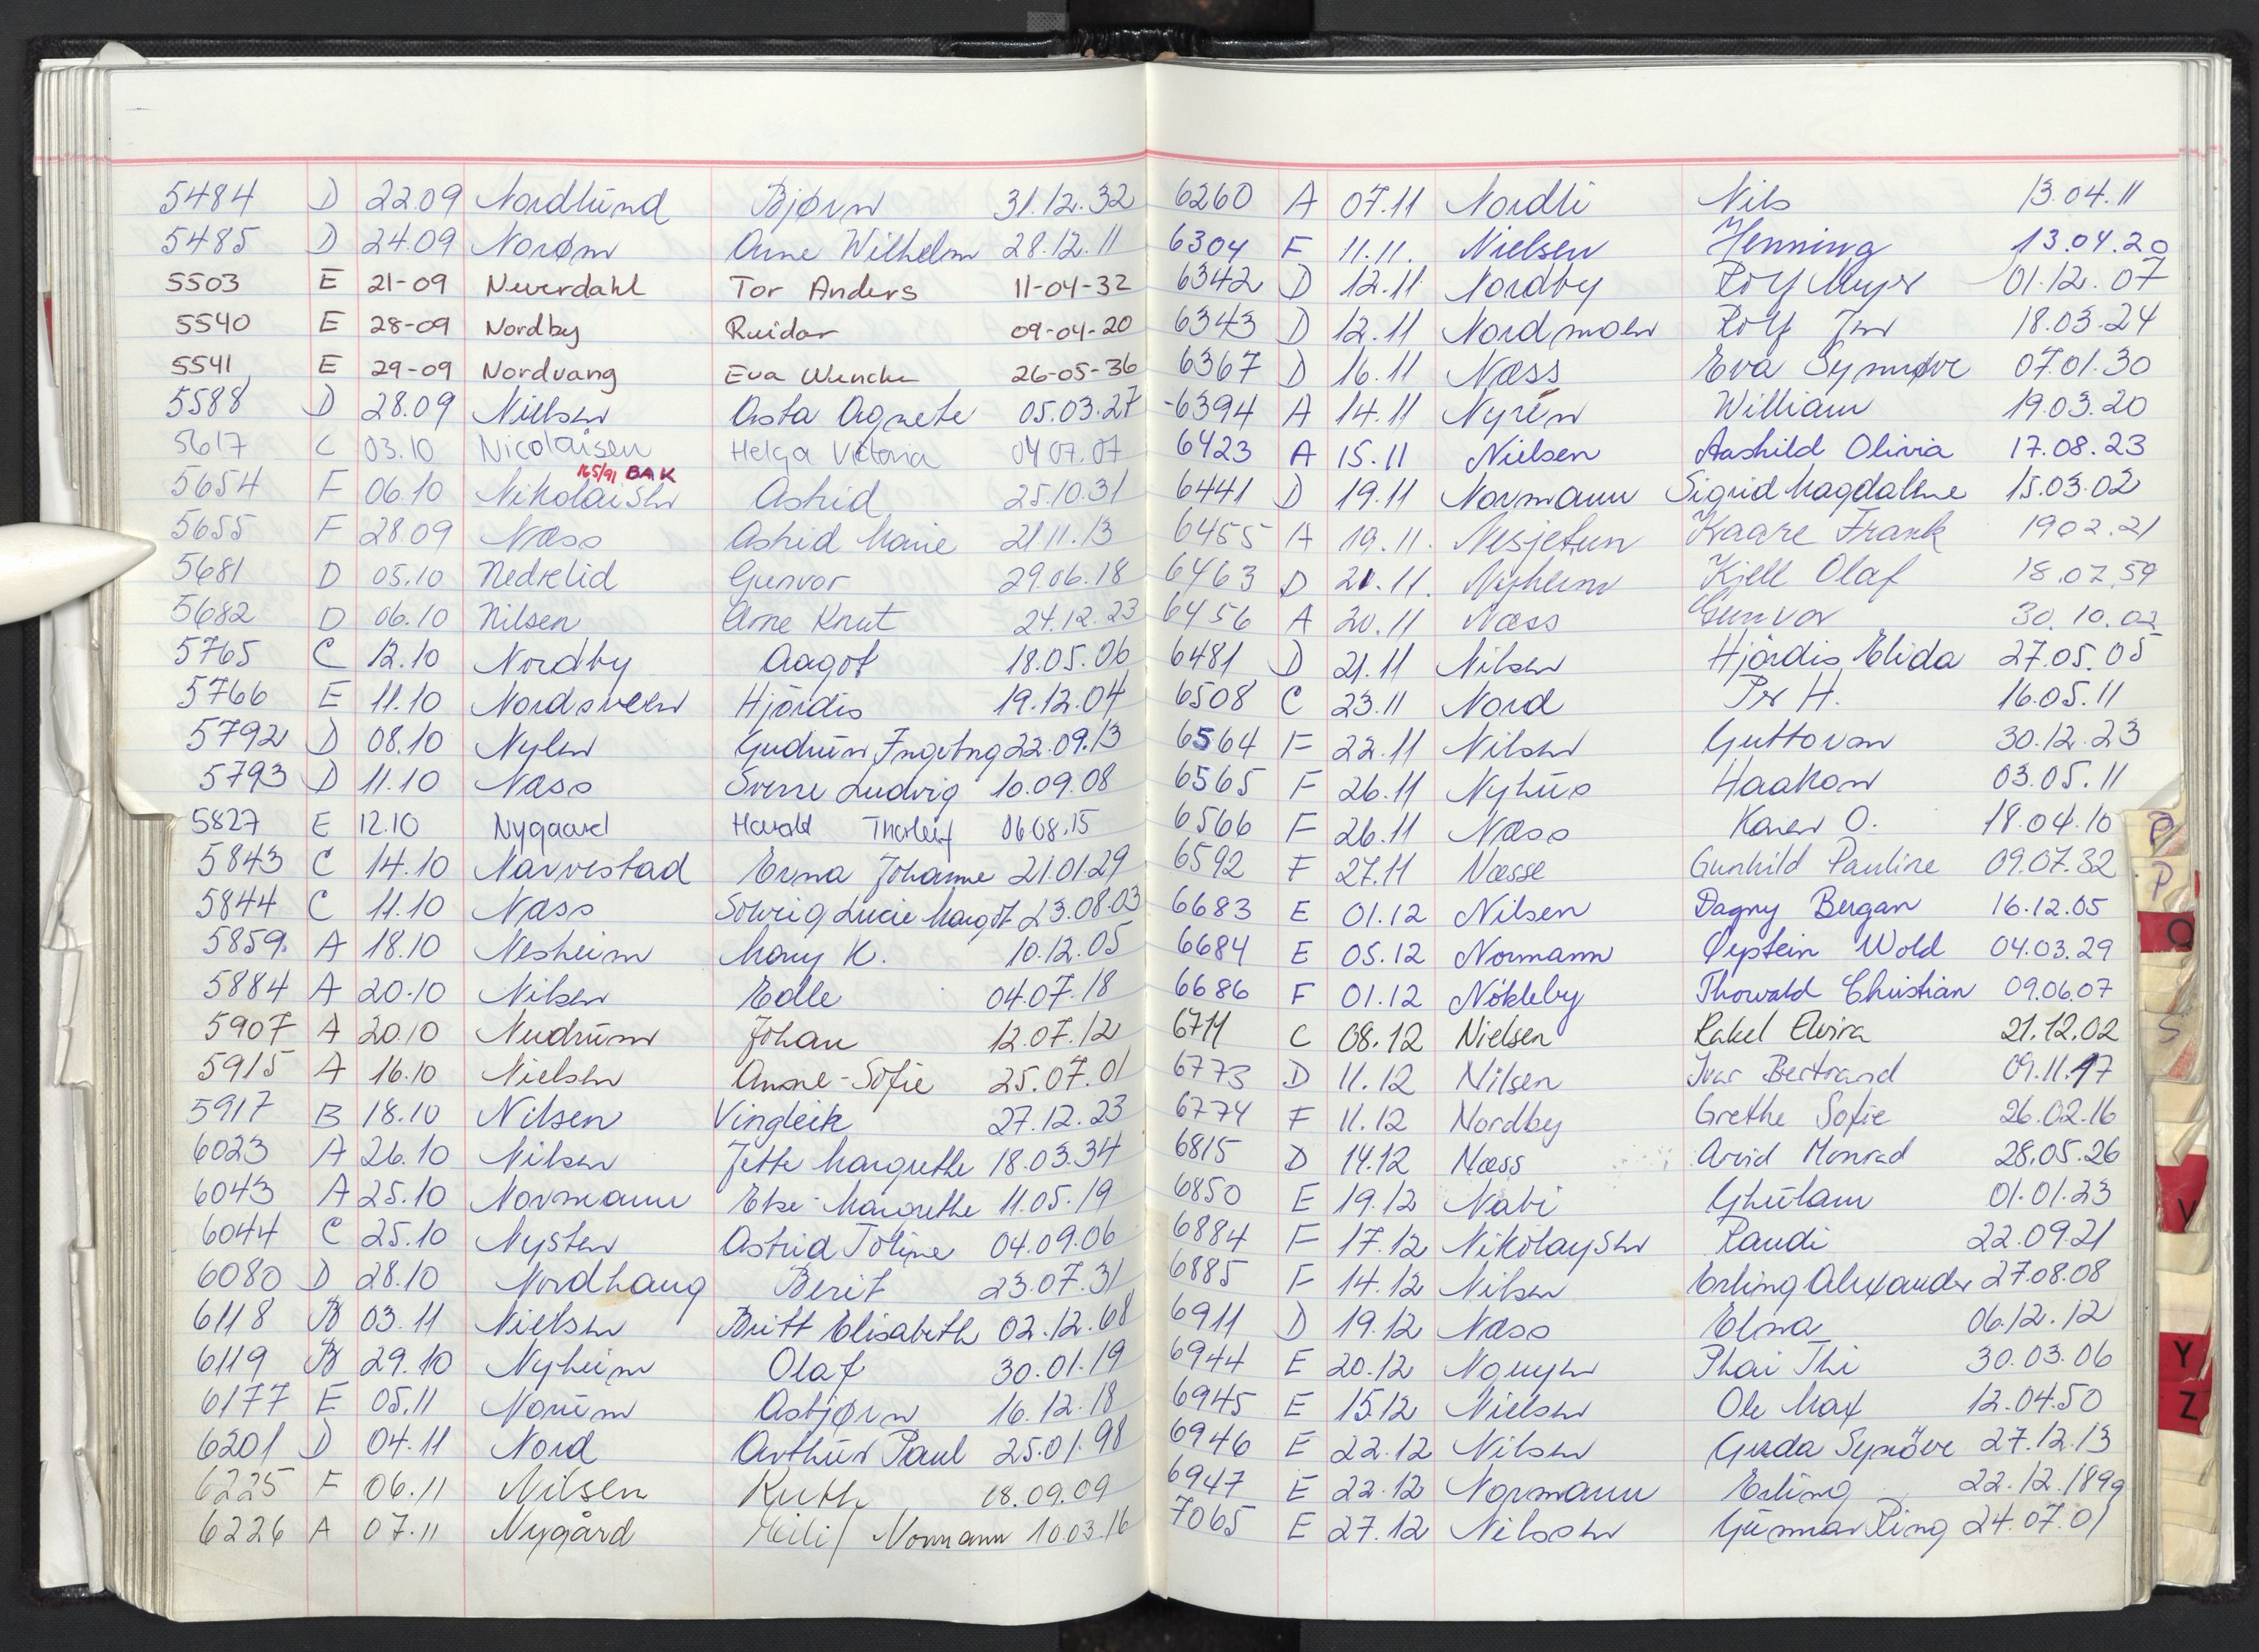 5484 D 22.09 Nordlund Bjørn 31.12.32
5485 D 24.09 Norøm Arne Wilhelm 28.12.11
5503 E 21-09 Neverdahl Tor Anders 11-04-32
5540 E 28-09 Nordby Reidar 09-04-20
5541 E 29-09 Nordvang Eva Wenche 26-05-36
5588 D 28.09 Nielsen Asta Agnete 05.03.27
5617 C 03.10 Nicolaisen Helga Victoria 04 07.07
165/91 BAK
5654 F 06.10 Nikolaisen Astrid 25.10.31
5655 F 28.09 Næss Astrid Marie 21 11.13
5681 D 05.10 Nedrelid Gunvor 29.06.18
5682 D 06.10 Nilsen Arne Knut 24.12.23
5765 C 12.10 Nordby Aagot 18.05.06
5766 E 11.10 Nordsveen Hjördis 19.12.04
5792 D 08.10 Nylen Gudrun Ingebrg 22.09.13
5793 D 11.10 Næss Sverre Ludvig 10.09.08
5827 E 12.10 Nygaard Harald Thorleif 06 08.15
5843 C 14.10 Narvestad Erna Johanne 21.01.29
5844 C 11.10 Næss Solveig Lucie Margot 23.08.03
5859. A 18.10 Nesheim Mary K. 10.12.05
5884 A 20.10 Nilsen Edle 04.07.18
5907 A 20.10 Nudrum Johan 12.07.12
5915 A 16.10 Nielsen Anne-Sofie 25.07.01
5917 B 18.10 Nilsen Vingleik 27.12.23
6023 A 26.10 Nilsen Jette Margrethe 18.03.34
6043 A 25.10 Normann Else Margrethe 11.05.19
6044 C 25.10 Nysten Astrid Joline 04.09.06
6080 D 28.10 Nordhaug Berit 23.07.31
6118 B 03.11 Nielsen Britt Elisabeth 02.12.68
6119 B 29.10 Nyheim Olaf 30.01.19
6177 E 05.11 Norum Asbjørn 16.12.18
6201 D 04.11 Nord Arthur Paul 25.01.98
6225 F 06.11 Nilsen Ruth 18.09.09
6226 A 07.11 Nygård Normann 10.03.16
6260 A 07.11 Nordli Nils 13.04.11
6304 F 11.11. Nielsen Henning 13.04.20
6342 D 12.11 Nordby Rolf Meyer 01.12.07
6343 D 12.11 Nordmoen Rolf 18.03.24
6367 D 16.11 Næss Eva Synnøve 07.01.30
-6394 A 14.11 Nyrén William 19.03.20
6423 A 15.11 Nielsen Aashild Olivia 17.08.23
6441 D 19.11 Normann Sigrid Magdalene 15.03.02
6455 A 19.11. Nesjetun Kaare Frank 1902.21
6463 D 21.11. Nyheim Kjell Olaf 18.07.59
6456 A 20.11 Næss Gunvor 30.10.02
6481 D 21.11 Nilsen Hjördis Elida 27.05.05
6508 C 23.11 Nord Per H. 16.05.11
6564 F 22.11 Nilsen Guttorm 30.12.23
6565 F 26.11 Nyhus Haakon 03.05.11
6566 F 26.11 Næss Karen O. 18.04.10
6592 F 27.11 Næsse Gunhild Pauline 09.07.32
6683 E 01.12 Nilsen Dagny Bergan 16.12.05
6684 E 05.12 Normann Øystein Wold 04.03.29
6686 F 01.12 Nökleby Thorvald Christian 09.06.07
6711 C 08.12 Nielsen Rakel Elvira 21.12.02
6773 D 11.12 Nilsen Ivar Bertrand 09.11.17
6774 F 11.12 Nordby Grethe Sofie 26.02.16
6815 D 14.12 Næss Arvid Monrad 28.05.26
6850 E 19.12 Nabi Ghulam 01.01.23
6884 F 17.12 Nikolaysen Randi 22.09.21
6885 F 14.12 Nilsen Erling Alexander 27.08.08
6911 D 19.12 Næss Elna 06.12.12
6944 E 20.12 Nguyen Phai Thi 30.03.06
6945 E 15.12 Nielsen Ole Max 12.04.50
6946 E 22.12 Nilsen Gerda Synöve 27.12.13
6947 E 22.12 Normann Erling 22.12.1899
7065 E 27.12 Nilssen Gunnar Ring 24.07.01
P
P
Q
S
V
Y
Z